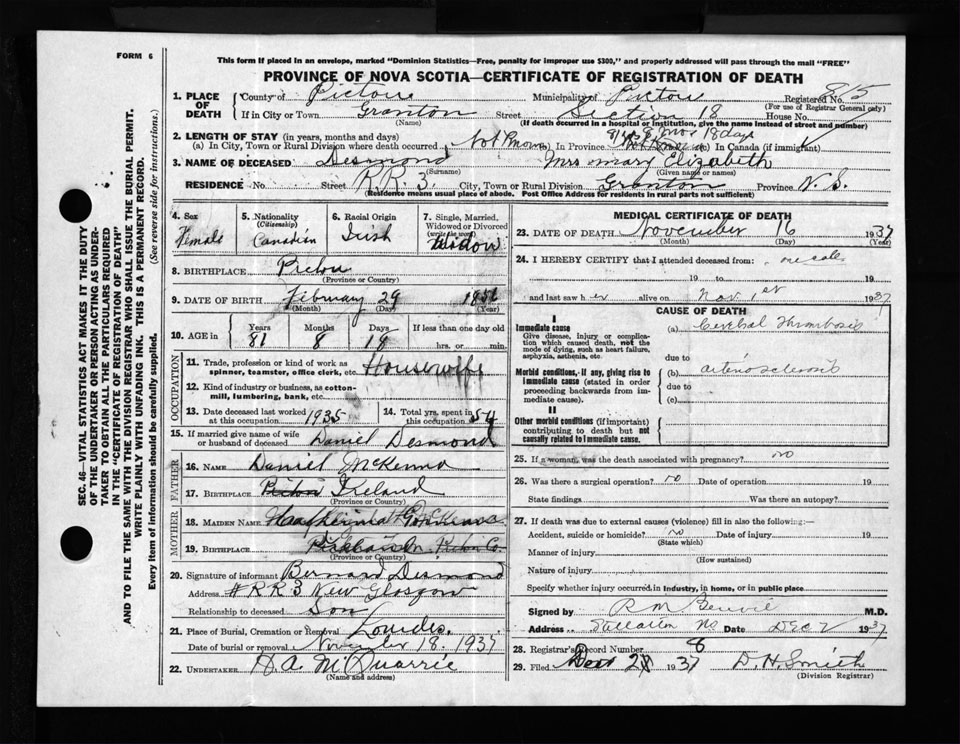 FORM 6
This form if placed in an envelope, marked "Dominion Statistics—Free, penalty for improper use $300," and properly addressed will pass through the mail "FREE"
PROVINCE OF NOVA SCOTIA—CERTIFICATE OF REGISTRATION OF DEATH
1. PLACE OF DEATH County of Pictou Municipality of Pictou Registered No. 85
(For use of Registrar General only)
If in City or Town Granton Street Section 18 House No.
(Name) (If death occurred in a hospital or institution, give the name instead of street and number)
2. LENGTH OF STAY (in years, months and days) 81 yrs 8 mos 18 days
(a) In City, Town or Rural Division where death occurred Not Known (b) In Province (c) In Canada (if immigrant)
3. NAME OF DECEASED Desmond Mrs Mary Elizabeth
(Surname) (Given name or names)
RESIDENCE No. Street R.R. 3. City, Town or Rural Division Granton Province N.S.
(Residence means usual place of abode. Post Office Address for residents in rural parts not sufficient)
4. Sex Female
5. Nationality (Citizenship) Canadian
6. Racial Origin Irish
7. Single, Married, Widowed or Divorced (write the word) Widow
8. BIRTHPLACE Pictou
(Province or Country)
9. DATE OF BIRTH February 29 1856
(Month) (Day) (Year)
10. AGE in Years 81 Months 8 Days 18 If less than one day old hrs. or min.
OCCUPATION
11. Trade, profession or kind of work as spinner, teamster, office clerk, etc. Housewife
12. Kind of industry or business, as cotton-mill, lumbering, bank, etc.
13. Date deceased last worked at this occupation 1935 14. Total yrs. spent in this occupation 54
15. If married give name of wife or husband of deceased Daniel Desmond
FATHER
16. NAME Daniel McKenna
17. BIRTHPLACE Pictou Ireland
MOTHER
18. MAIDEN NAME
19. BIRTHPLACE Pictou Co.
(Province or Country)
20. Signature of informant Bernard Desmond
Address # R R 3 New Glasgow
Relationship to deceased Son
21. Place of Burial, Cremation or Removal Lourdes.
Date of burial or removal November 18. 1937
22. UNDERTAKER H. A. McQuarrie
(Name and address)
MEDICAL CERTIFICATE OF DEATH
23. DATE OF DEATH November 16 1937
(Month) (Day) (Year)
24. I HEREBY CERTIFY that I attended deceased from: one call
19 to 19
and last saw h er alive on Nov. 1st 1937
CAUSE OF DEATH
I
Immediate cause
Give disease, injury or complication which caused death, not the mode of dying, such as heart failure, asphyxia, asthenia, etc.
(a) Cerebral Thrombosis
due to
Morbid conditions, if any, giving rise to immediate cause (stated in order proceeding backwards from immediate cause).
(b) arteriosclerosis
due to
(c)
II
Other morbid conditions (if important) contributing to death but not causally related to immediate cause.
25. If a woman, was the death associated with pregnancy? no
26. Was there a surgical operation? no Date of operation 19
State findings Was there an autopsy?
27. If death was due to external causes (violence) fill in also the following:—
Accident, suicide or homicide? no Date of injury 19
(State which)
Manner of injury
(How sustained)
Nature of injury
Specify whether injury occurred in industry, in home, or in public place
Signed by R M Benvie M.D.
Address Stellarton NS Date Dec 2 1937
28. Registrar's Record Number 8
29. Filed 1937 D. H. Smith
(Division Registrar)
SEC. 46—VITAL STATISTICS ACT MAKES IT THE DUTY
OF THE UNDERTAKER OR PERSON ACTING AS UNDER-
TAKER TO OBTAIN ALL THE PARTICULARS REQUIRED
IN THE "CERTIFICATE OF REGISTRATION OF DEATH"
AND TO FILE THE SAME WITH THE DIVISION REGISTRAR WHO SHALL ISSUE THE BURIAL PERMIT.
WRITE PLAINLY WITH UNFADING INK. THIS IS A PERMANENT RECORD.
Every item of information should be carefully supplied. (See reverse side for instructions.)